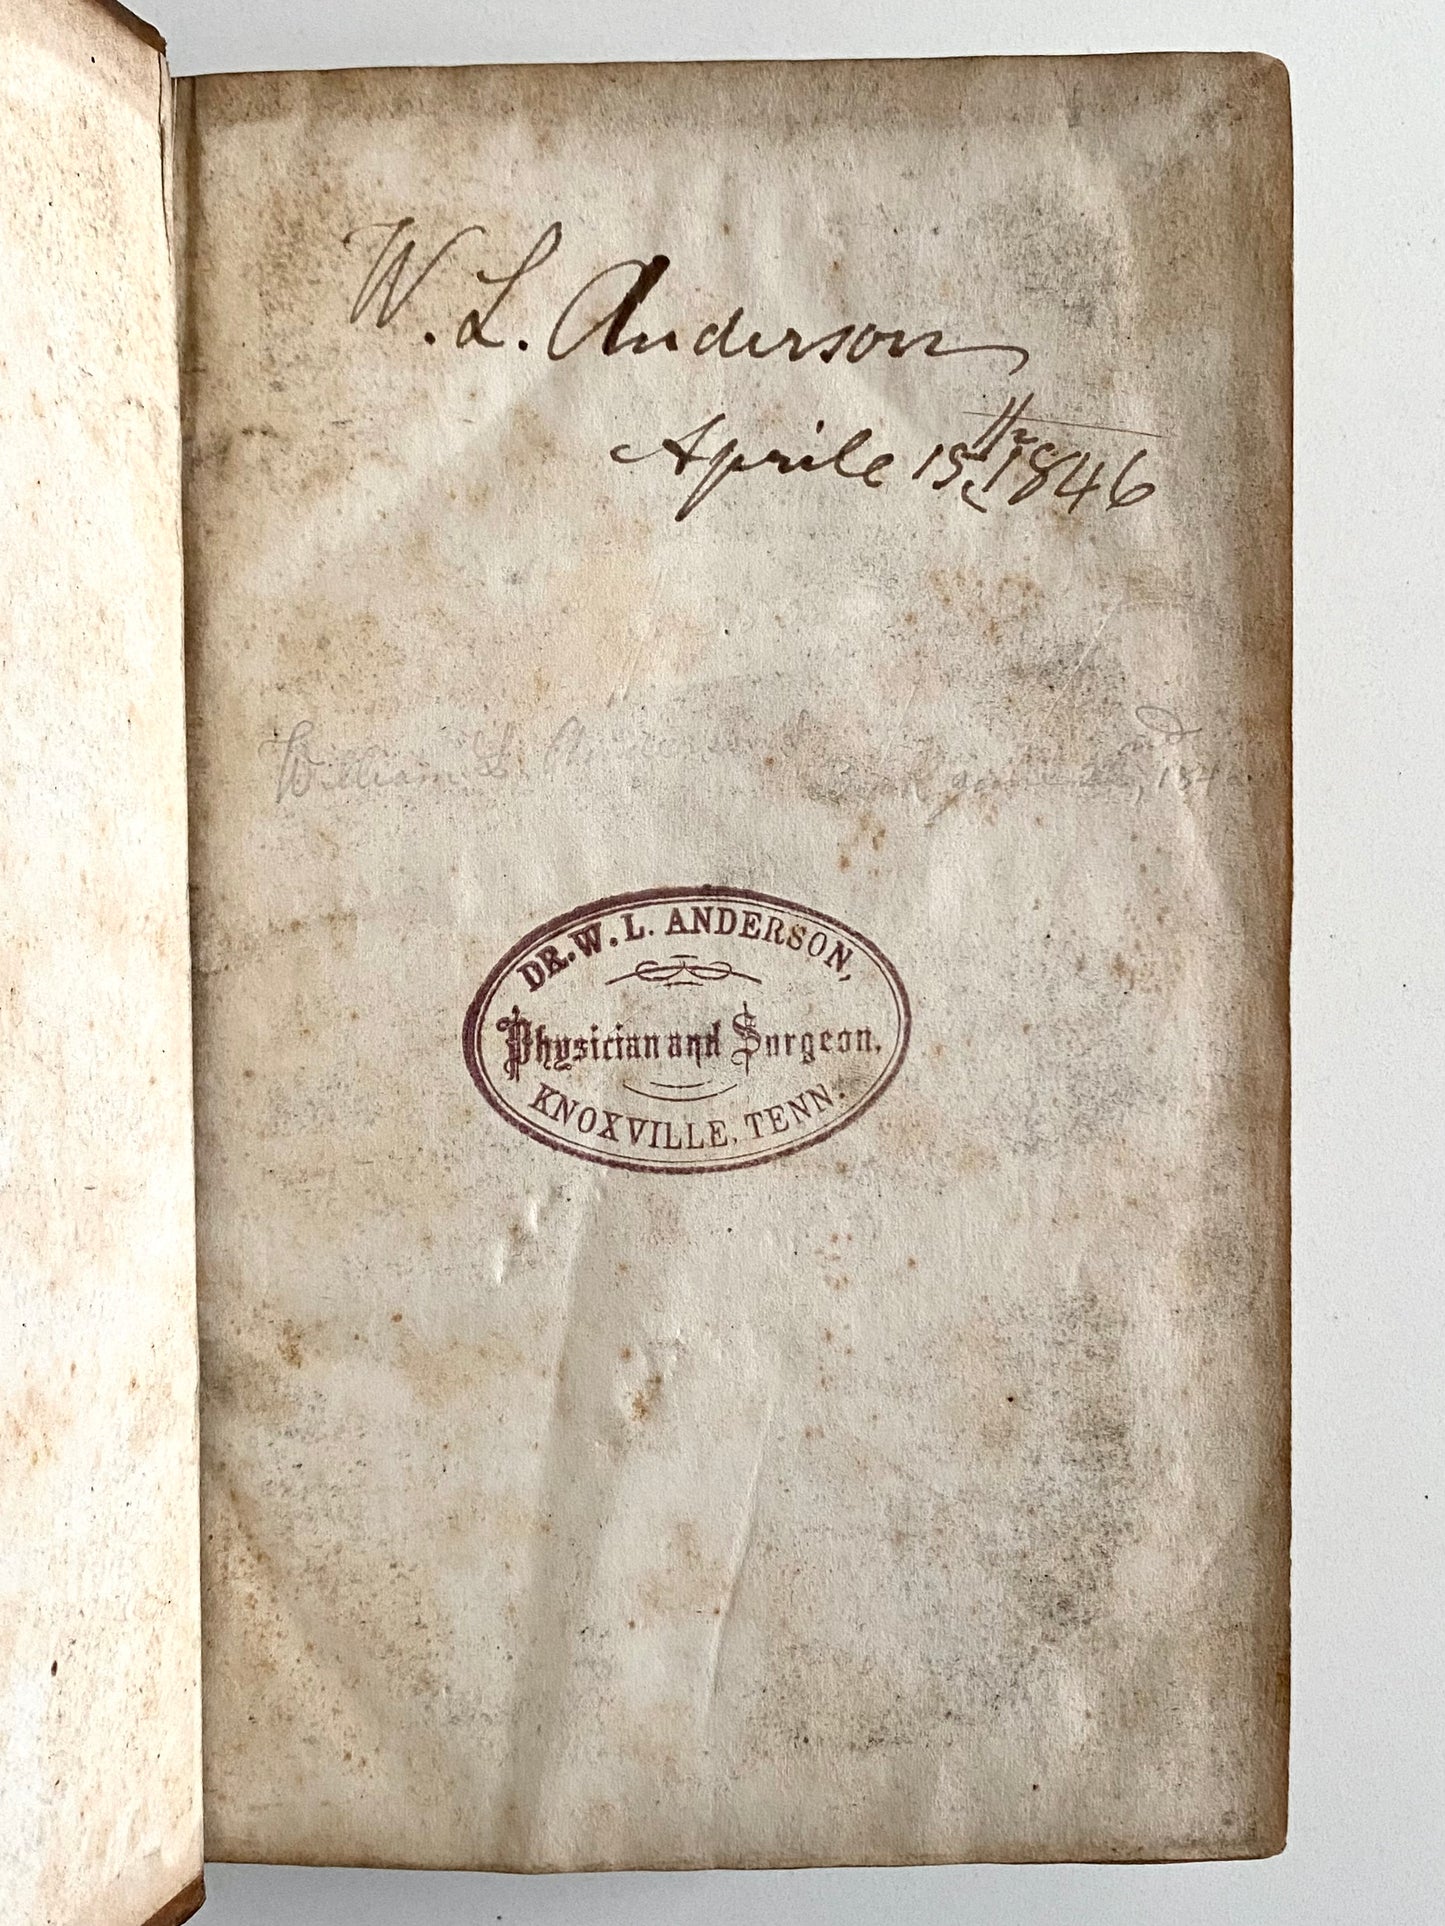 W. L. Anderson
Aprile 15th, 1846
William L. Anderson's
Book
DR. W. L. ANDERSON,
Physician and Surgeon.
KNOXVILLE, TENN.